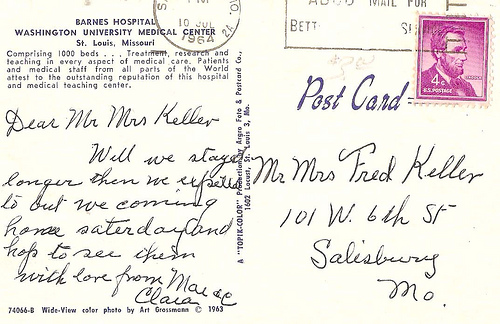 BARNES HOSPITAL
WASHINGTON UNIVERSITY MEDICAL CENTER
St. Louis, Missouri
Comprising 1000 beds . . . Treatment, research and
teaching in every aspect of medical care. Patients
and medical staff from all parts of the World
attest to the outstanding reputation of this hospital
and medical teaching center.
Dear Mr Mrs Keller
Will we stayed
longer then we expected
to but we coming
home saterday and
hop to see them
with love from Mae &
Clara
74066-B Wide-View color photo by Art Grossmann © 1963
A "TOPIX-COLOR" Production by Argro Foto & Postcard Co.,
1602 Locust, St. Louis 3, Mo.
PM
10 JUL
1964
MAIL FOR
BETT
4¢
U.S. POSTAGE
Post Card
Mr Mrs Fred Keller
101 W. 6th St
Salisbury
Mo.